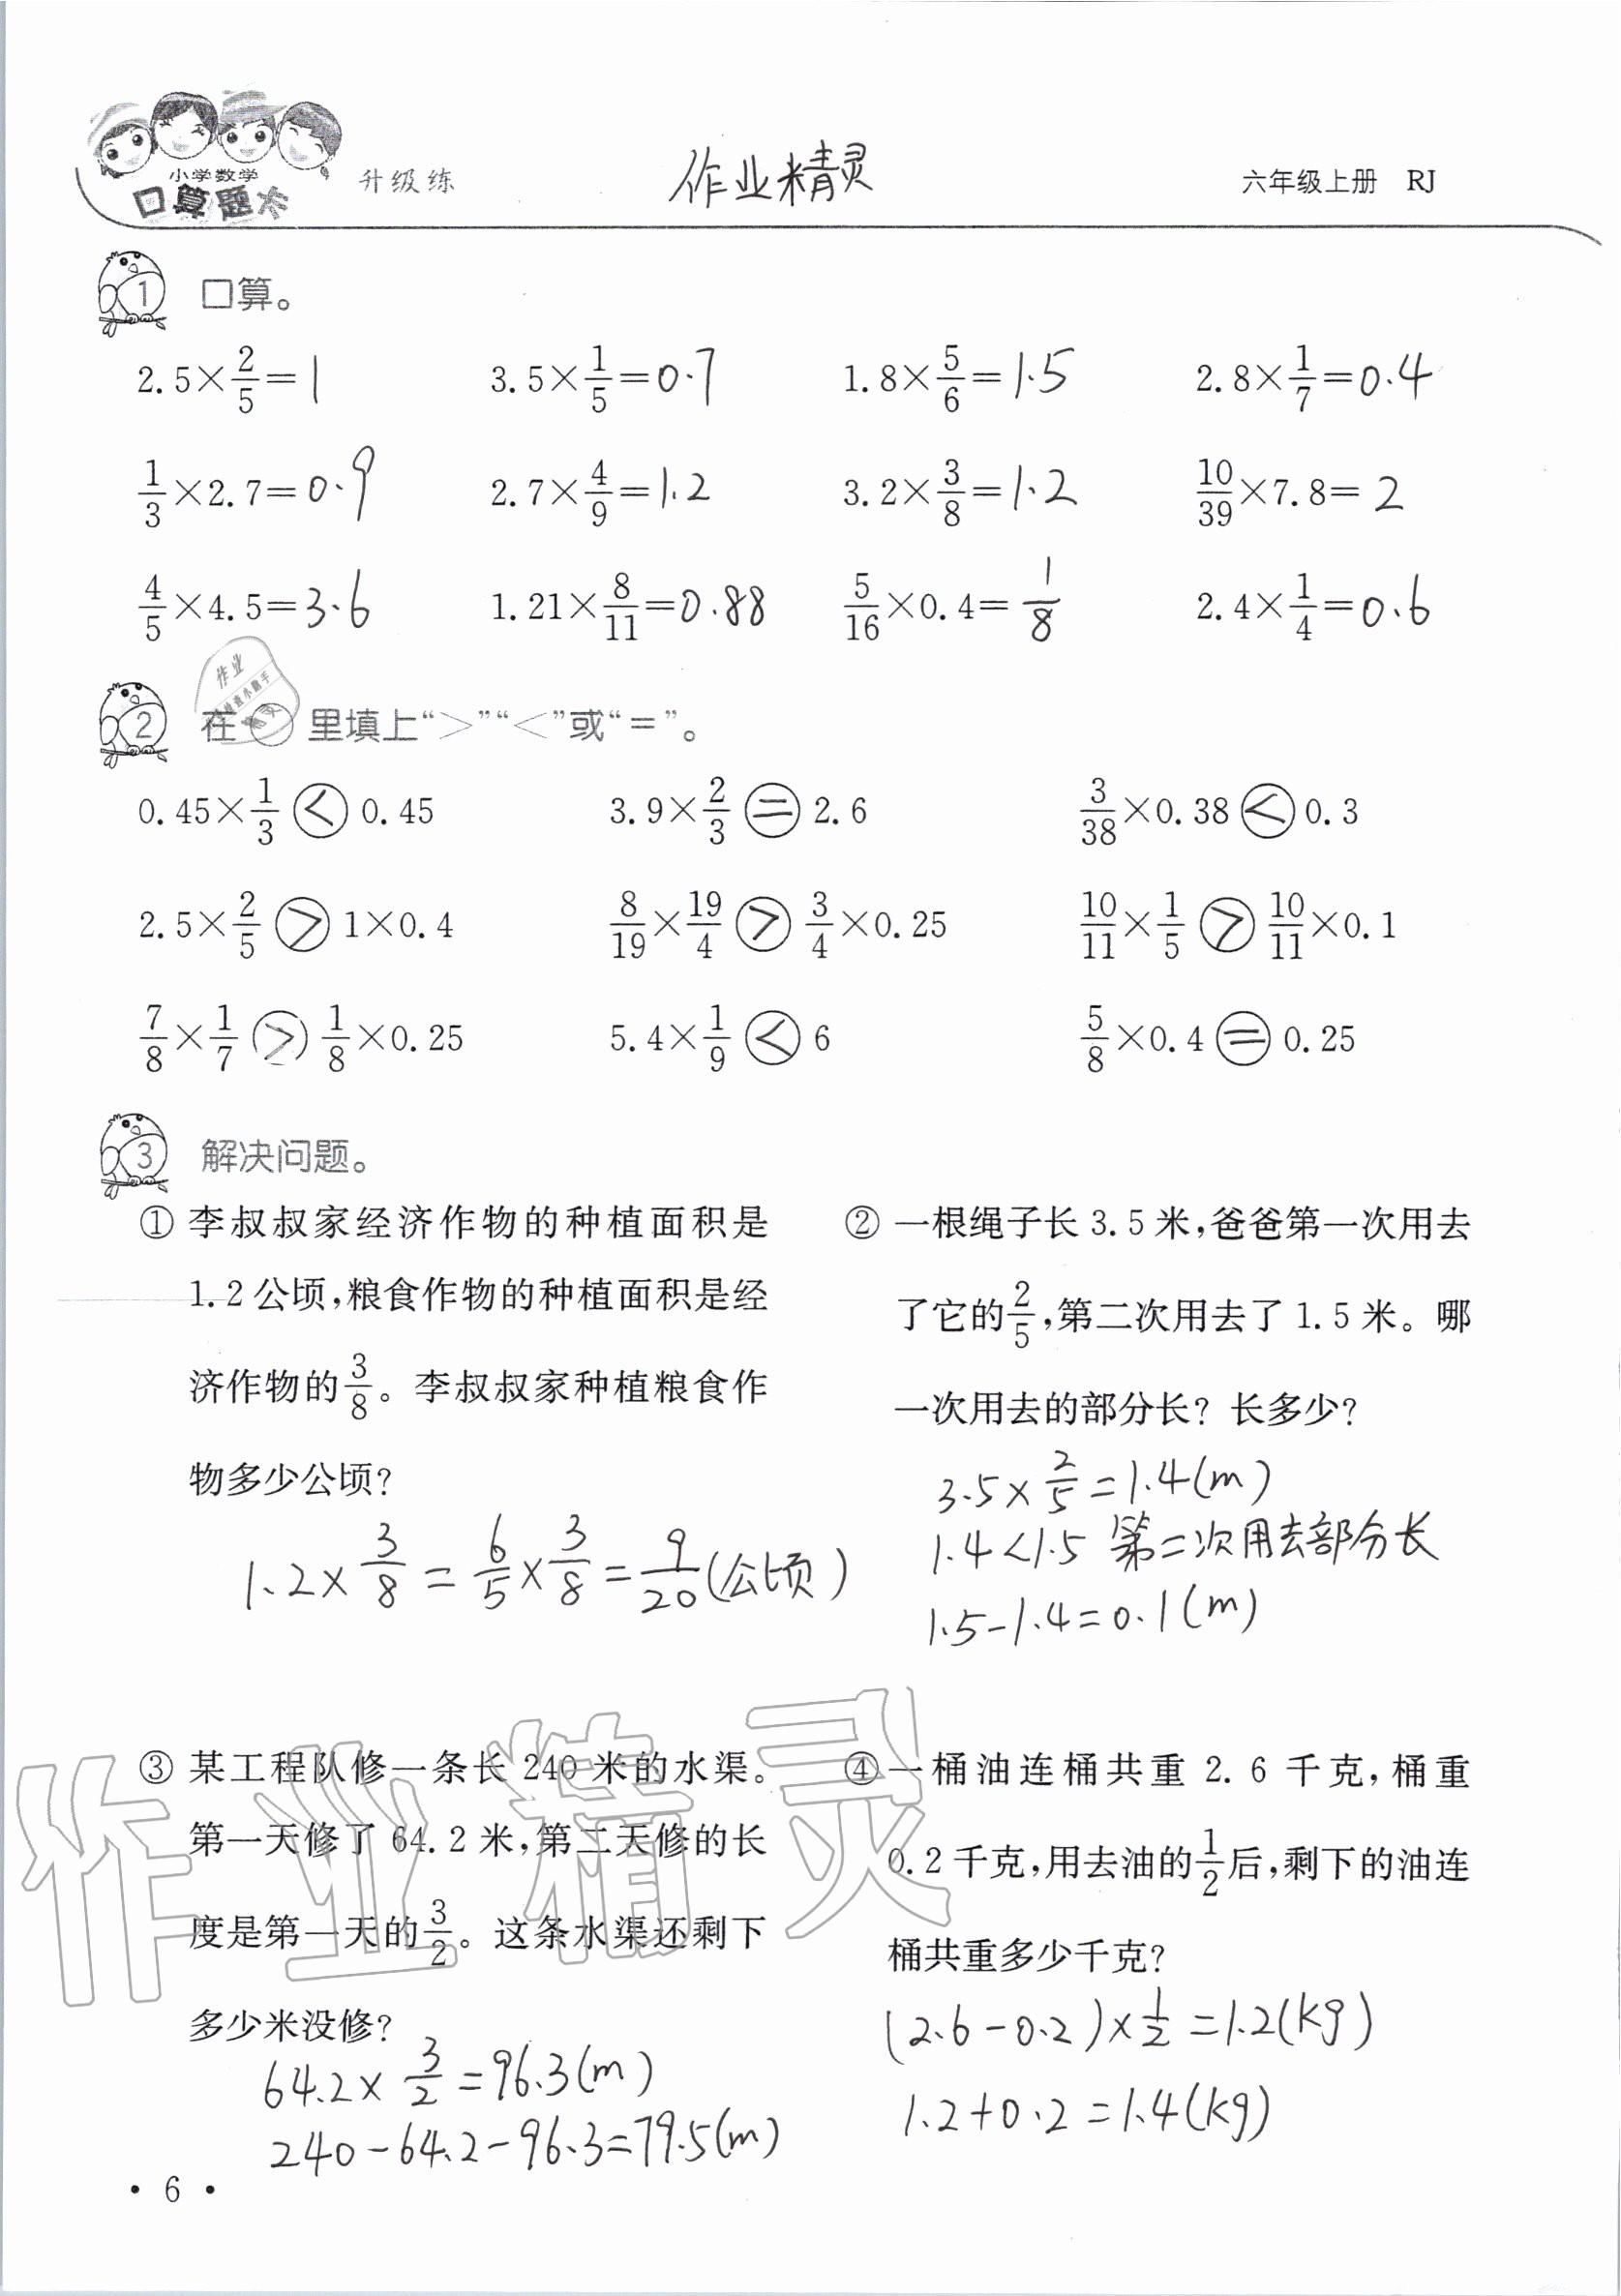 小学数学
口算题卡 升级练 作业精灵 六年级上册 RJ
1 口算。
2.5×2/5=1 3.5×1/5=0.7 1.8×5/6=1.5 2.8×1/7=0.4
1/3×2.7=0.9 2.7×4/9=1.2 3.2×3/8=1.2 10/39×7.8=2
4/5×4.5=3.6 1.21×8/11=0.88 5/16×0.4=1/8 2.4×1/4=0.6
作业
2 在 里填上“>”“<”或“=”。
0.45×1/3<0.45 3.9×2/3=2.6 3/38×0.38<0.3
2.5×2/5>1×0.4 8/19×19/4>3/4×0.25 10/11×1/5>10/11×0.1
7/8×1/7>1/8×0.25 5.4×1/9<6 5/8×0.4=0.25
3 解决问题。
① 李叔叔家经济作物的种植面积是
1.2公顷,粮食作物的种植面积是经
济作物的3/8。李叔叔家种植粮食作
物多少公顷?
1.2×3/8=6/5×3/8=9/20(公顷)
② 一根绳子长3.5米,爸爸第一次用去
了它的2/5,第二次用去了1.5米。哪
一次用去的部分长? 长多少?
3.5×2/5=1.4(m)
1.4<1.5 第二次用去部分长
1.5-1.4=0.1(m)
③ 某工程队修一条长240米的水渠。
第一天修了64.2米,第二天修的长
度是第一天的3/2。这条水渠还剩下
多少米没修?
64.2×3/2=96.3(m)
240-64.2-96.3=79.5(m)
④ 一桶油连桶共重2.6千克,桶重
0.2千克,用去油的1/2后,剩下的油连
桶共重多少千克?
(2.6-0.2)×1/2=1.2(kg)
1.2+0.2=1.4(kg)
作业精灵
· 6 ·